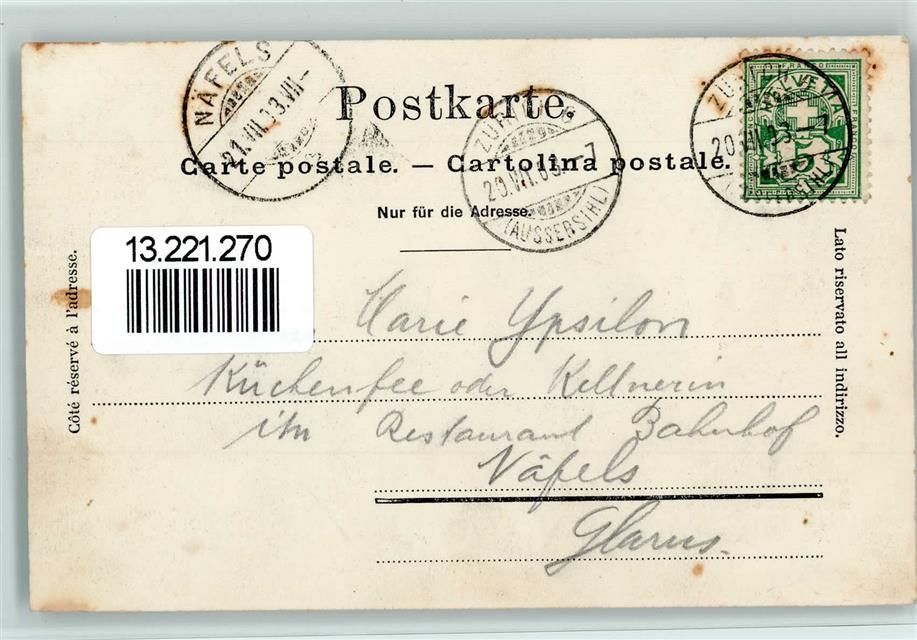 NÄFELS
21.VII.03.VII-
Postkarte.
ZÜRICH
20.VII.03.-7
(AUSSERSIHL)
HELVETIA
FRANCO
5
20.VII.03.-7
Carte postale. — Cartolina postale.
Nur für die Adresse.
13.221.270
Côté réservé à l'adresse.
Lato riservato all indirizzo.
Marie Ypsilon
Küchenfee oder Kellnerin
im Restaurant Bahnhof
Näfels
Glarus.